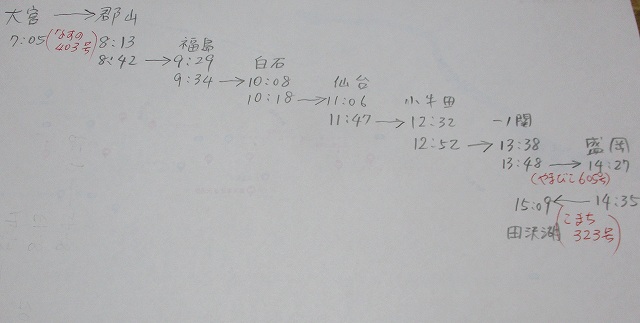 大宮 → 郡山
7:05 (なすの 403号) 8:13
福島
8:42 → 9:29
白石
9:34 → 10:08
仙台
10:18 → 11:06
小牛田
11:47 → 12:32
一ノ関
12:52 → 13:38
盛岡
13:48 → 14:27
(やまびこ605号)
15:09 ← 14:35
田沢湖 (こまち 323号)